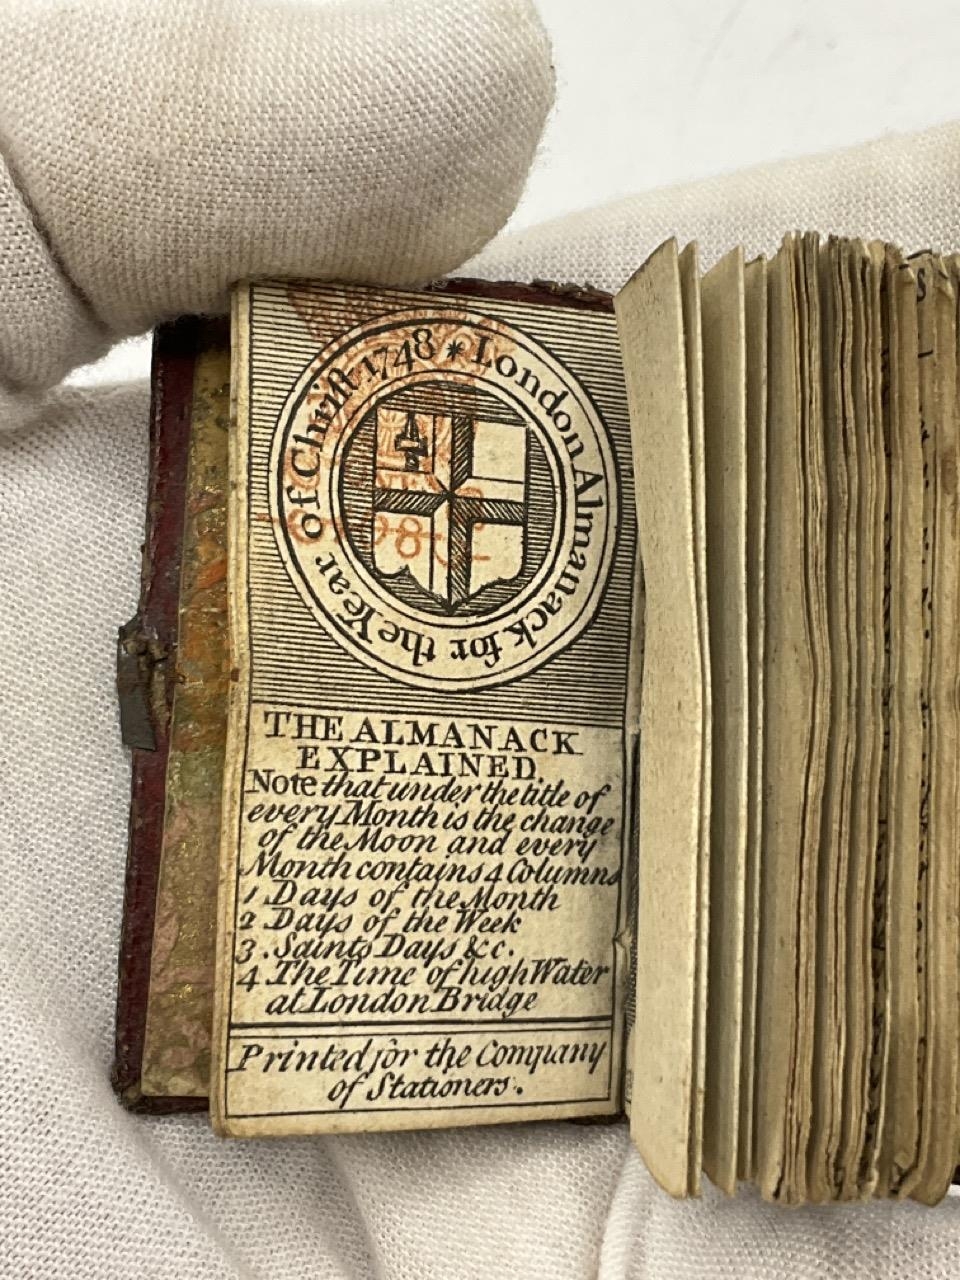 London Almanack for the Year of Christ 1748 *
THE ALMANACK
EXPLAINED.
Note that under the title of
every Month is the change
of the Moon and every
Month contains 4 Columns
1 Days of the Month
2 Days of the Week
3. Saints Days &c.
4 The Time of high Water
at London Bridge
Printed for the Company
of Stationers.